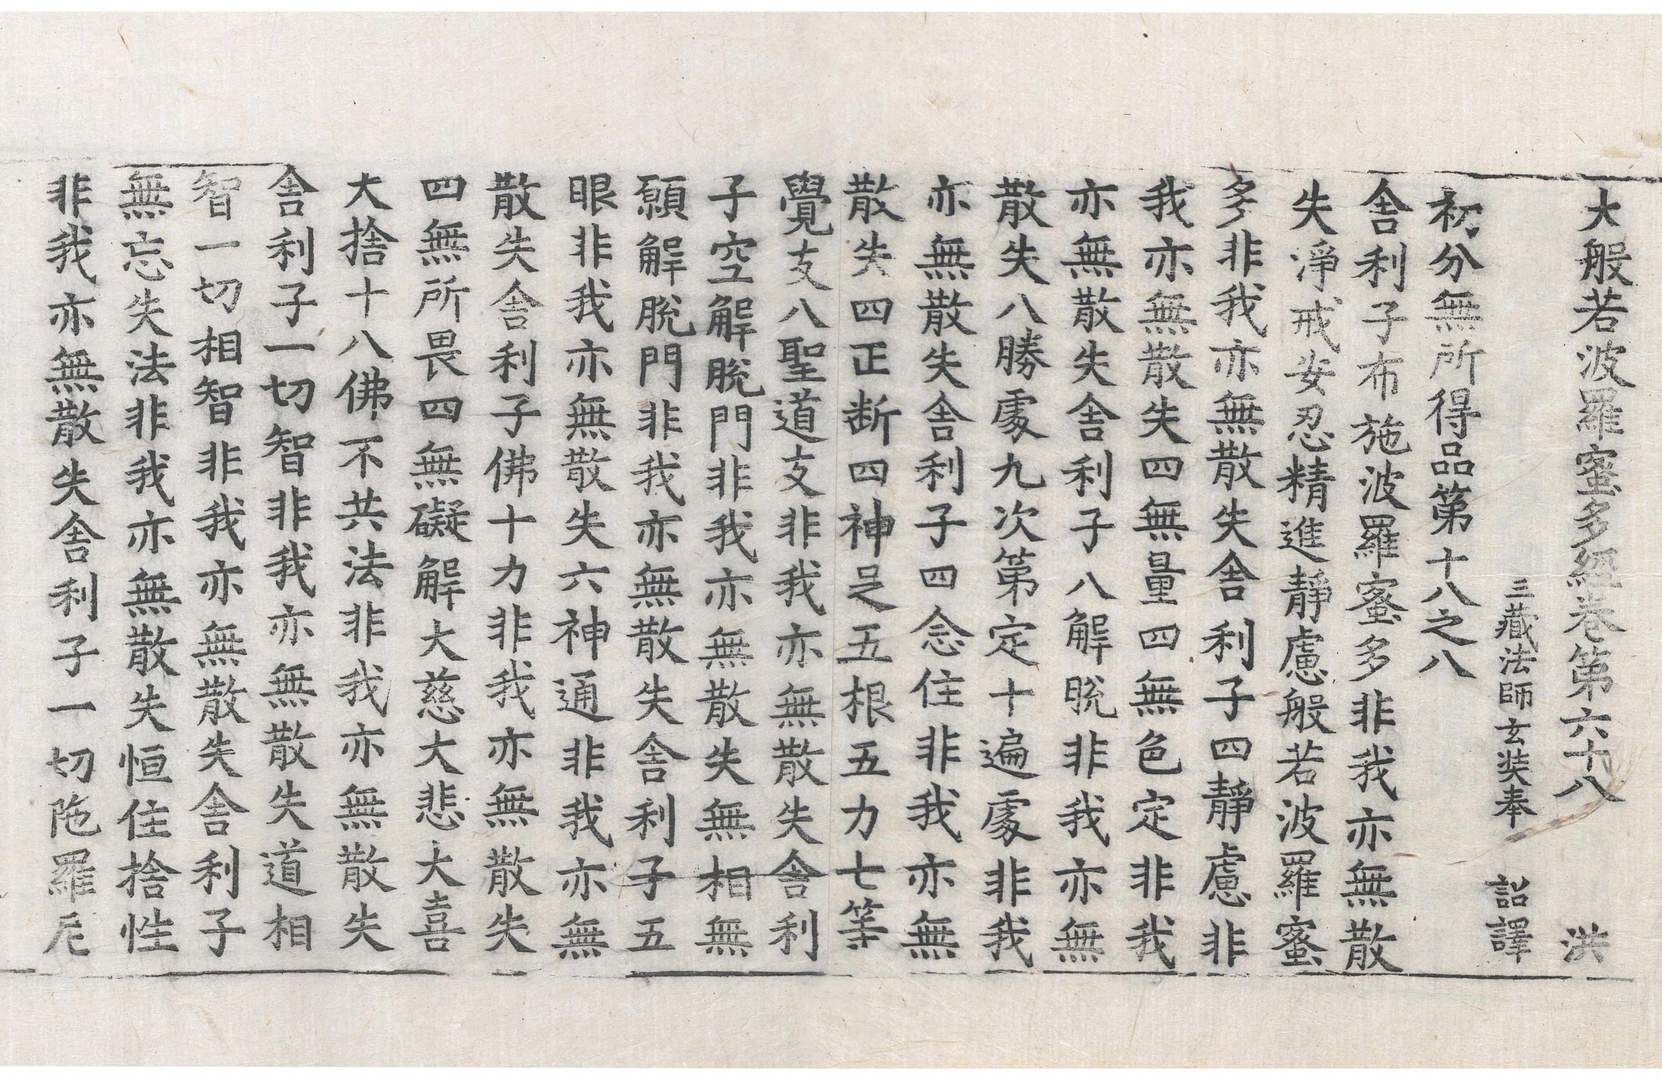 大般若波羅蜜多經卷第六十八　洪
三藏法師玄奘奉　詔譯
初分無所得品第十八之八
舍利子布施波羅蜜多非我亦無散
失淨戒安忍精進靜慮般若波羅蜜
多非我亦無散失舍利子四靜慮非
我亦無散失四無量四無色定非我
亦無散失舍利子八解脫非我亦無
散失八勝處九次第定十遍處非我
亦無散失舍利子四念住非我亦無
散失四正斷四神足五根五力七等
覺支八聖道支非我亦無散失舍利
子空解脫門非我亦無散失無相無
願解脫門非我亦無散失舍利子五
眼非我亦無散失六神通非我亦無
散失舍利子佛十力非我亦無散失
四無所畏四無礙解大慈大悲大喜
大捨十八佛不共法非我亦無散失
舍利子一切智非我亦無散失道相
智一切相智非我亦無散失舍利子
無忘失法非我亦無散失恒住捨性
非我亦無散失舍利子一切陁羅尼